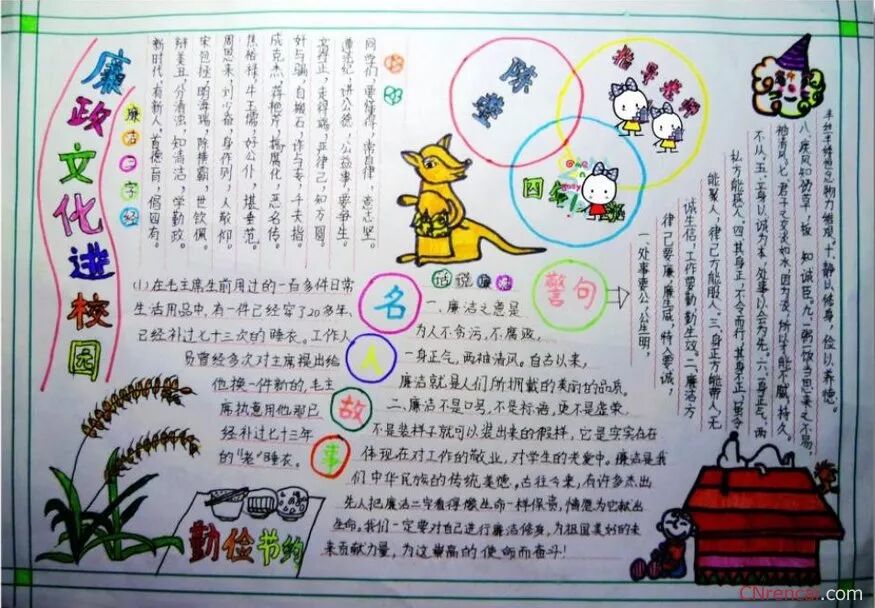 廉政文化进校园
廉洁三字经
同学们，要懂得，常自律，意志坚。
遵法纪，讲公德，公益事，要争先。
立得正，走得端，严律己，知方圆。
奸与骗，自搬石，诈与夺，千夫指。
成克杰，蒋艳芳，搞腐化，恶名传。
焦裕禄，牛玉儒，好公仆，堪垂范。
周恩来，刘少奇，身作则，人敬仰。
宋包拯，明海瑞，除强霸，世钦佩。
辩美丑，分清浊，知清洁，学勤政。
新时代，育新人，首德育，倡四有。
指导老师
四年1班
名人故事
(1)在毛主席生前用过的一百多件日常
生活用品中，有一件已经穿了20多年、
已经补过七十三次的睡衣。工作人
员曾经多次对主席提出给
他换一件新的，毛主
席执意用他那已
经补过七十三年
的“老”睡衣。
话说廉洁
一、廉洁之意是
为人不贪污，不腐败，
一身正气，两袖清风。自古以来，
廉洁就是人们所拥戴的美丽的品质。
二、廉洁不是口号，不是标语，更不是虚荣，
不是装样子就可以装出来的假样，它是实实在在
体现在对工作的敬业，对学生的关爱中。廉洁是我
们中华民族的传统美德。古往今来，有许多杰出
先人把廉洁二字看得像生命一样保贵，情愿为它献出
生命。我们一定要对自己进行廉洁修身，为祖国美好的未
来贡献力量，为这崇高的使命而奋斗！
警句
一、处事要公，公生明，
律己要廉，廉生威，待人要诚，
诚生信，工作要勤，勤生效。二、廉洁方
能聚人，律己方能服人。三、身正方能带人，无
私方能感人。四、其身正，不令而行，其身不正，虽令
不从。五、立身以诚为本，处事以公为先。六、一身正气，两
袖清风。七、君子之交淡如水，因为淡，所以不能不腻，持久。
八、疾风知劲草，板 知诚臣。九、一粥一饭当思来之不易，
半丝半缕恒念物力维艰。十、静以修身，俭以养德。
勤俭节约
CNrencai.com